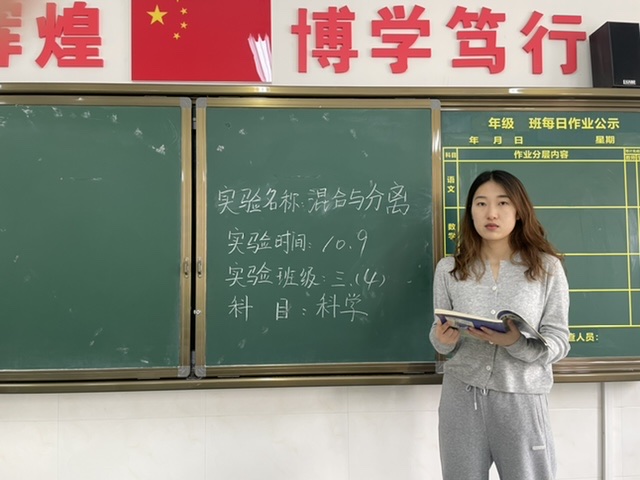 辉煌
博学笃行
实验名称:混合与分离
实验时间:10.9
实验班级:三.(4)
科 目:科学
年级 班每日作业公示
年 月 日 星期
科目 作业分层内容
语文
数学
查人员: